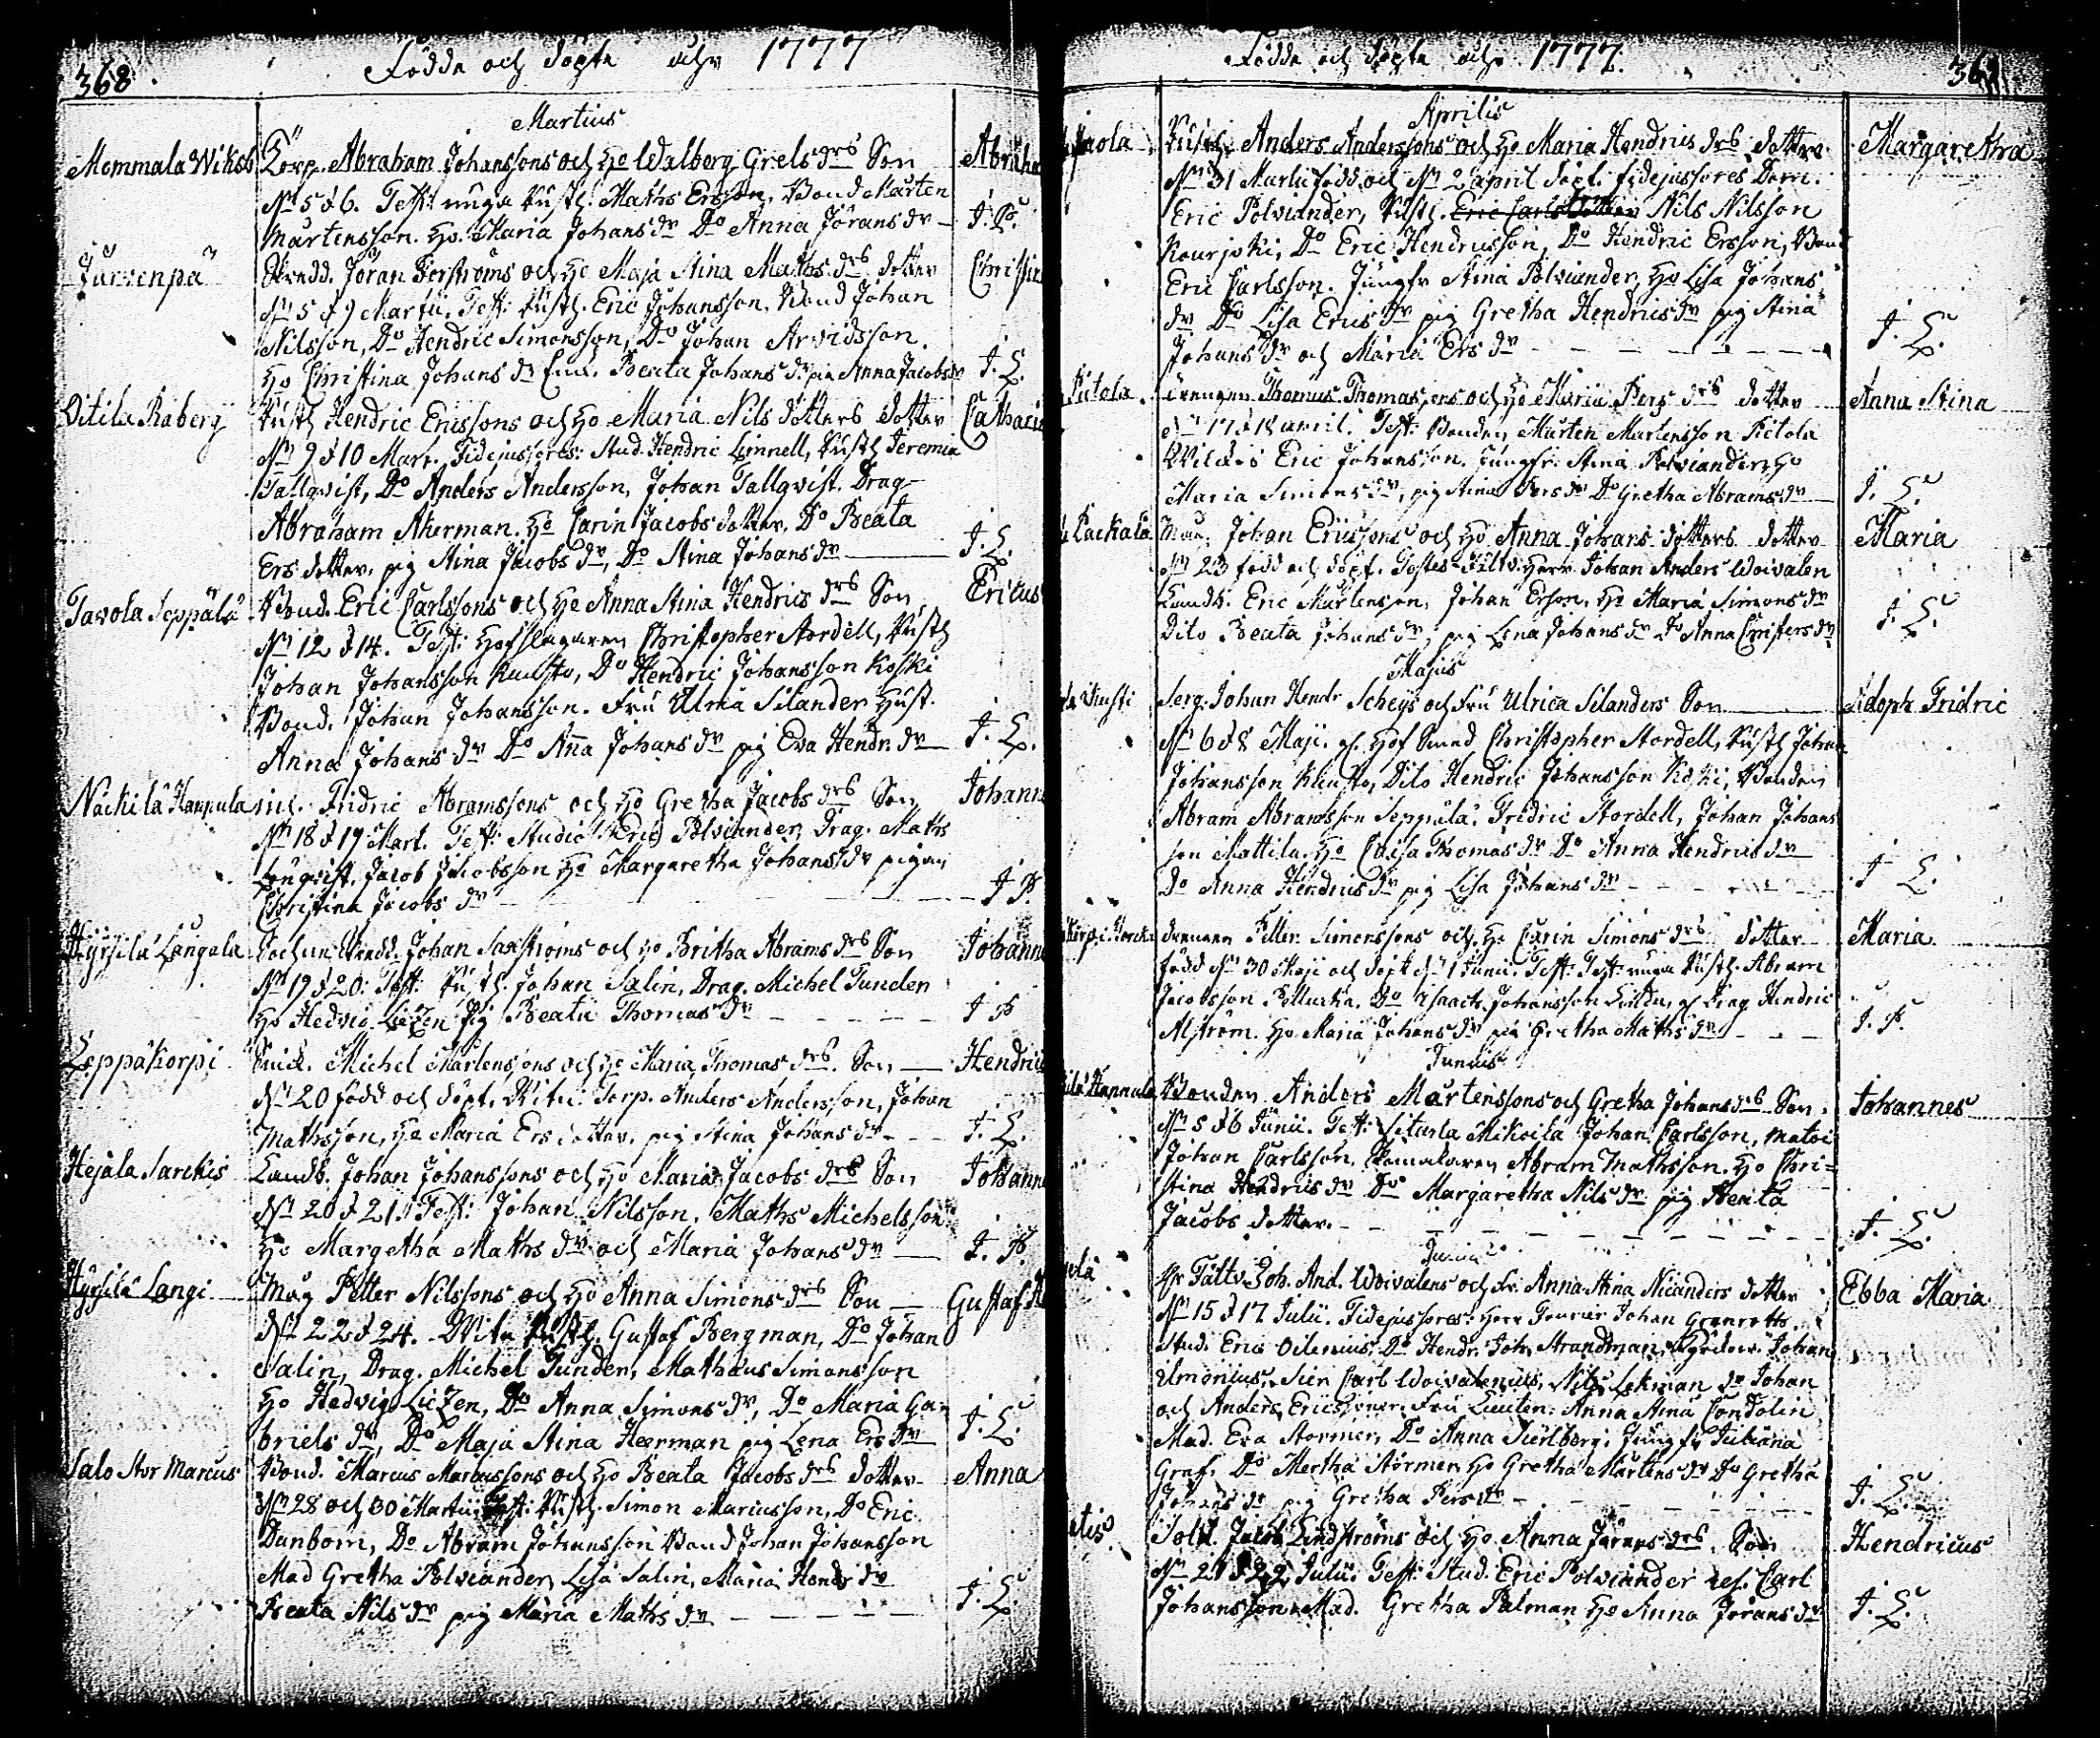 368.
Födde och döpte åhr 1777
Martius
Mommala Wiksb. Torp. Abraham Johanssons och Ho Walborg Grels drs Son Abraha
dn 5 d 6. Test: unga Rusth. Maths Ersson, Bond Mårten
Mårtensson. Ho. Maria Johans dr Do Anna Jörans dr — J. P.
Jurvenpä Skredd. Jöran Forströms och Ho Maja Stina Maths drs dotter Christin
dn 5 d 9 Martii. Test: Rusth. Eric Johansson. Bond Johan
Nilsson, Do Hendric Simonsson, Do Johan Arvidsson.
Ho Christina Johans dr Beata Johans dr pig Anna Jacobs dr J. L.
Oitila Raberg Rusth Hendric Ericssons och Ho Maria Nils dotters dotter Catharin
dn 9 d 10 Mart. Fidejussores: Stud. Hendric Limnell, Rusth Jeremia
Tallqvist, Do Anders Andersson, Johan Tallqvist. Drag.
Abraham Åkerman. Ho Carin Jacobs dotter, Do Beata
Ers dotter, pig Stina Jacobs dr, Do Stina Johans dr — J. L.
Tavola Seppälä Bond. Eric Carlssons och Ho Anna Stina Hendrics drs Son Ericus
dn 12 d 14. Test: Hofslagaren Christopher Nordell, Rusth
Johan Johansson Kunsto, Do Hendric Johansson Koski
Bond. Johan Johansson. Fru Ulrica Silander Hust.
Anna Johans dr Do Anna Johans dr pig Eva Hendr. dr — J. L.
Nackila Hannula Fridric Abramssons och Ho Gretha Jacobs drs Son Johann
dn 18 d 19 Mart. Test: Studios. Eric Polviander, Drag. Maths
Lönqvist, Jacob Jacobsson Ho Margaretha Johans dr pigan
Christina Jacobs dr — J. P.
Hyrsilä Längala Sochn. Skredd. Johan Saxströms och Ho Britha Abrams drs Son Johanne
dn 19 d 20: Test: Rusth. Johan Salin, Drag. Michel Tunder
Ho Hedvig Liezen Pig Beata Thomas dr — J P
Leppäkorpi Snick. Michel Mårtenssons och Ho Maria Thomas drs. Son — Hendric
dn 20 född och döpt. Witn: Torp. Anders Andersson, Johan
Mathsson, Ho Maria Ers dotter, pig Stina Johans dr — J. L.
Hejala Sarckis Landb. Johan Johanssons och Ho Maria Jacobs drs Son Johann
dn 20 d 21. Test: Johan Nilsson, Maths Michelsson
Ho Margetha Maths dr och Maria Johans dr — J. P.
Hyrsilä Langi Måg Petter Nilssons och Ho Anna Simons drs Son — Gustaf
dn 22 d 24. Witn Rusth. Gustaf Bergman, Do Johan
Salin, Drag. Michel Tunder, Mathæus Simonsson
Ho Hedvig Liezen, Do Anna Simons dr, Do Maria Ga
briels dr, Do Maja Stina Heerman pig Lena Ers dr J. L.
Salo Stor Marcus Bond. Marcus Marcussons och Ho Beata Jacobs drs dotter Anna
dn 28 och 30 Martii, Test: Rusth. Simon Marcusson, Do Eric
Danbom, Do Abram Johansson Bond Johan Johansson
Mad Gretha Polviander, Lisa Salin, Maria Hendr dr
Beata Nils dr pig Maria Maths dr — J. L.
Födde och döpte åhr 1777. 369
Aprilis
Rusth. Anders Anderssons och Ho Maria Hendrics drs dotter Margaretha
dn 31 Martii född och dn 2 april döpt. fidejussores Dom.
Eric Polviander, Rusth. Nils Nilsson
Kourjoki, Do Eric Hendricsson, Do Hendric Ersson, Bond
Eric Carlsson. Jungfr Stina Polviander, Ho Lisa Johans
dr Do Lisa Erics dr pig Gretha Hendrics dr pig Stina
Johans dr och Maria Ers dr — J. L.
Pietola. drengen Thomas Thomassons och Ho Maria Pers drs dotter Anna Stina
dn 17 d 18 april. Test: Bonden Mårten Mårtensson Pietola
Eric Johansson. Jungfr. Stina Polviander, Ho
Maria Simons dr, pig Stina Pers dr Do Gretha Abrams dr — J. L.
Packala Måg. Johan Ericssons och Ho Anna Johans dotters dotter Maria
dn 23 född och döpt. Testes Fältv. Herr Johan Anders Woivalen
Landb. Eric Mårtensson, Johan Erson, Ho Maria Simons dr
Dito Beata Johans dr, pig Lena Johans dr Do Anna Christers dr J. L.
Majus
Serg. Johan Hendr Scheys och Fru Ulrica Silanders Son Adoph Fridric
dn 6 d 8 Maji. Hof Smed Christopher Nordell, Rusth Johan
Johansson Kunsto, Dito Hendric Johansson Koski, Bonden
Abram Abramsson Seppälä, Fredric Nordell, Johan Johans
son Mattila. Ho Caisa Thomas dr Do Anna Hendrics dr
Do Anna Hendrics dr pig Lisa Johans dr — J L.
drengen Petter Simonssons och Ho Carin Simons drs dotter Maria
född dn 30 Maji och döpt dn 1 Junii. Test: unga Rusth. Abram
Jacobsson Do Isaach Johansson Drag Hendric
Alström. Ho Maria Johans dr pig Gretha Maths dr — J. P.
Junius
Hannula Bonden Anders Mårtenssons och Gretha Johans drs Son Johannes
dn 5 d 6 Junii. Test: Sitarla Mikoila Johan Carlsson, Matoi
Johan Carlsson. Skomakaren Abram Mathsson. Ho Chri=
stina Hendrics dr Do Margaretha Nils dr pig Beata
Jacobs dotter. — J. L.
Fältv. Joh. And. Woivalens och Fr. Anna Stina Nicanders dotter Ebba Maria
dn 15 d 17 Julii. Fidejussores: Herr Fourier Johan Grenroth.
Stud. Eric Oilenius, Do Hendr. Joh. Strandman, Johan
Ilmonius, Sier Carl Woivalenius, Nils Lekman do Johan
och Anders Ericssoner. Fru Lieuten: Anna Stina Condolin
Mad. Eva Stormer, Do Anna Juliana
Graf. Do Mertha Störmer, Ho Gretha Mårtens dr Do Gretha
Johans dr pig Gretha Pers dr — J. L.
Sold. Jacob Lindströms och Ho Anna Jörans drs Son Hendricus
dn 21 d 22 Julii. Test: Stud. Eric Polviander Carl
Johansson. Mad. Gretha Palman Ho Anna Jörans dr J. L.